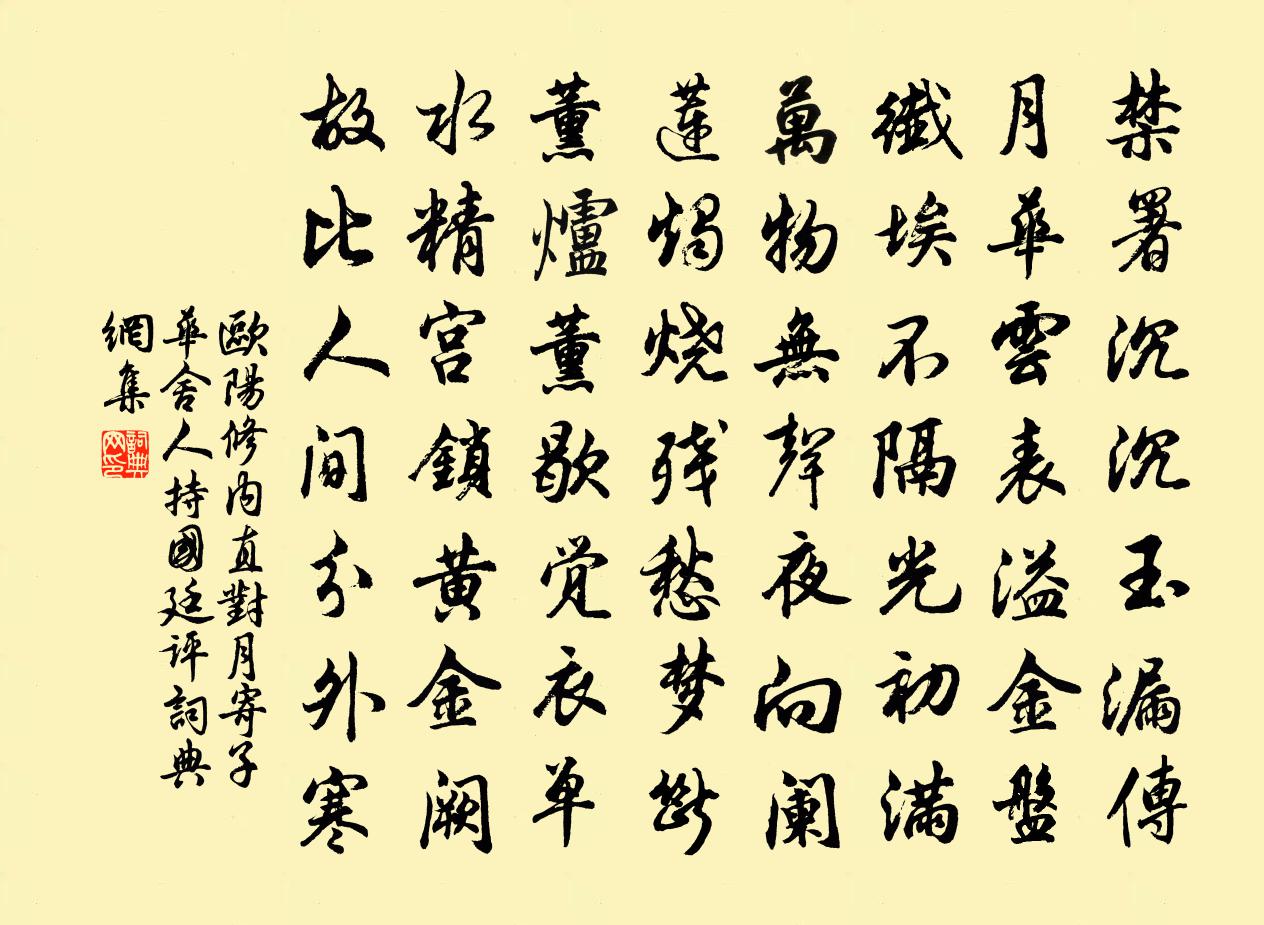 禁署沉沉玉漏傳
月華雲表溢金盤
纖埃不隔光初滿
萬物無聲夜向阑
蓮燭烧残愁梦斷
薰爐薰歇觉衣单
水精宫鎖黄金阙
故比人间分外寒
歐陽修内直對月寄子
華舍人持國廷评詞典
網集
詞典网印